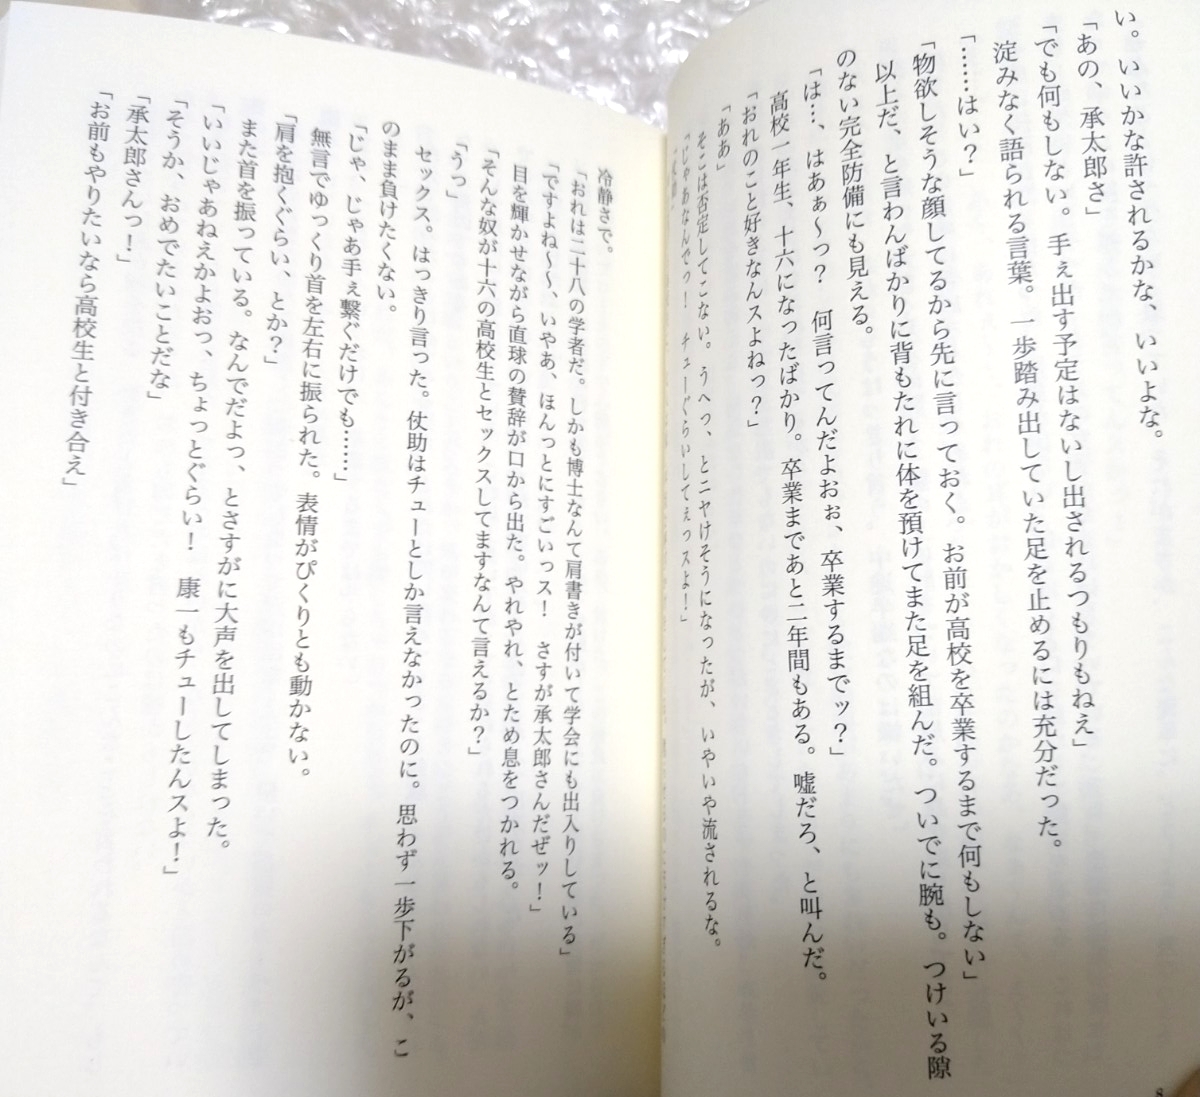 い。いいかな許されるかな、いいよな。
「あの、承太郎さ」
「でも何もしない。手ぇ出す予定はないし出されるつもりもねえ」
淀みなく語られる言葉。一歩踏み出していた足を止めるには充分だった。
「……はい？」
「物欲しそうな顔してるから先に言っておく。お前が高校を卒業するまで何もしない」
以上だ、と言わんばかりに背もたれに体を預けてまた足を組んだ。ついでに腕も。つけいる隙
のない完全防備にも見える。
「は…、はあぁ～っ？　何言ってんだよおぉ、卒業するまでッ？」
高校一年生、十六になったばかり。卒業まであと二年間もある。嘘だろ、と叫んだ。
「おれのこと好きなんスよねっ？」
「ああ」
そこは否定してこない。うへっ、とニヤけそうになったが、いやいや流されるな。
「じゃあなんでっ！　チューぐらいしてえっスよ！」
冷静さで。
「おれは二十八の学者だ。しかも博士なんて肩書きが付いて学会にも出入りしている」
「ですよね～～、いやあ、ほんっとにすごいっス！　さすが承太郎さんだぜッ！」
目を輝かせながら直球の賛辞が口から出た。やれやれ、とため息をつかれる。
「そんな奴が十六の高校生とセックスしてますなんて言えるか？」
「うっ」
セックス。はっきり言った。仗助はチューとしか言えなかったのに。思わず一歩下がるが、こ
のまま負けたくない。
「じゃ、じゃあ手ぇ繋ぐだけでも……」
無言でゆっくり首を左右に振られた。表情がぴくりとも動かない。
「肩を抱くぐらい、とか？」
また首を振っている。なんでだよっ、とさすがに大声を出してしまった。
「いいじゃあねえかよおっ、ちょっとぐらい！　康一もチューしたんスよ！」
「そうか、おめでたいことだな」
「承太郎さんっ！」
「お前もやりたいなら高校生と付き合え」
8